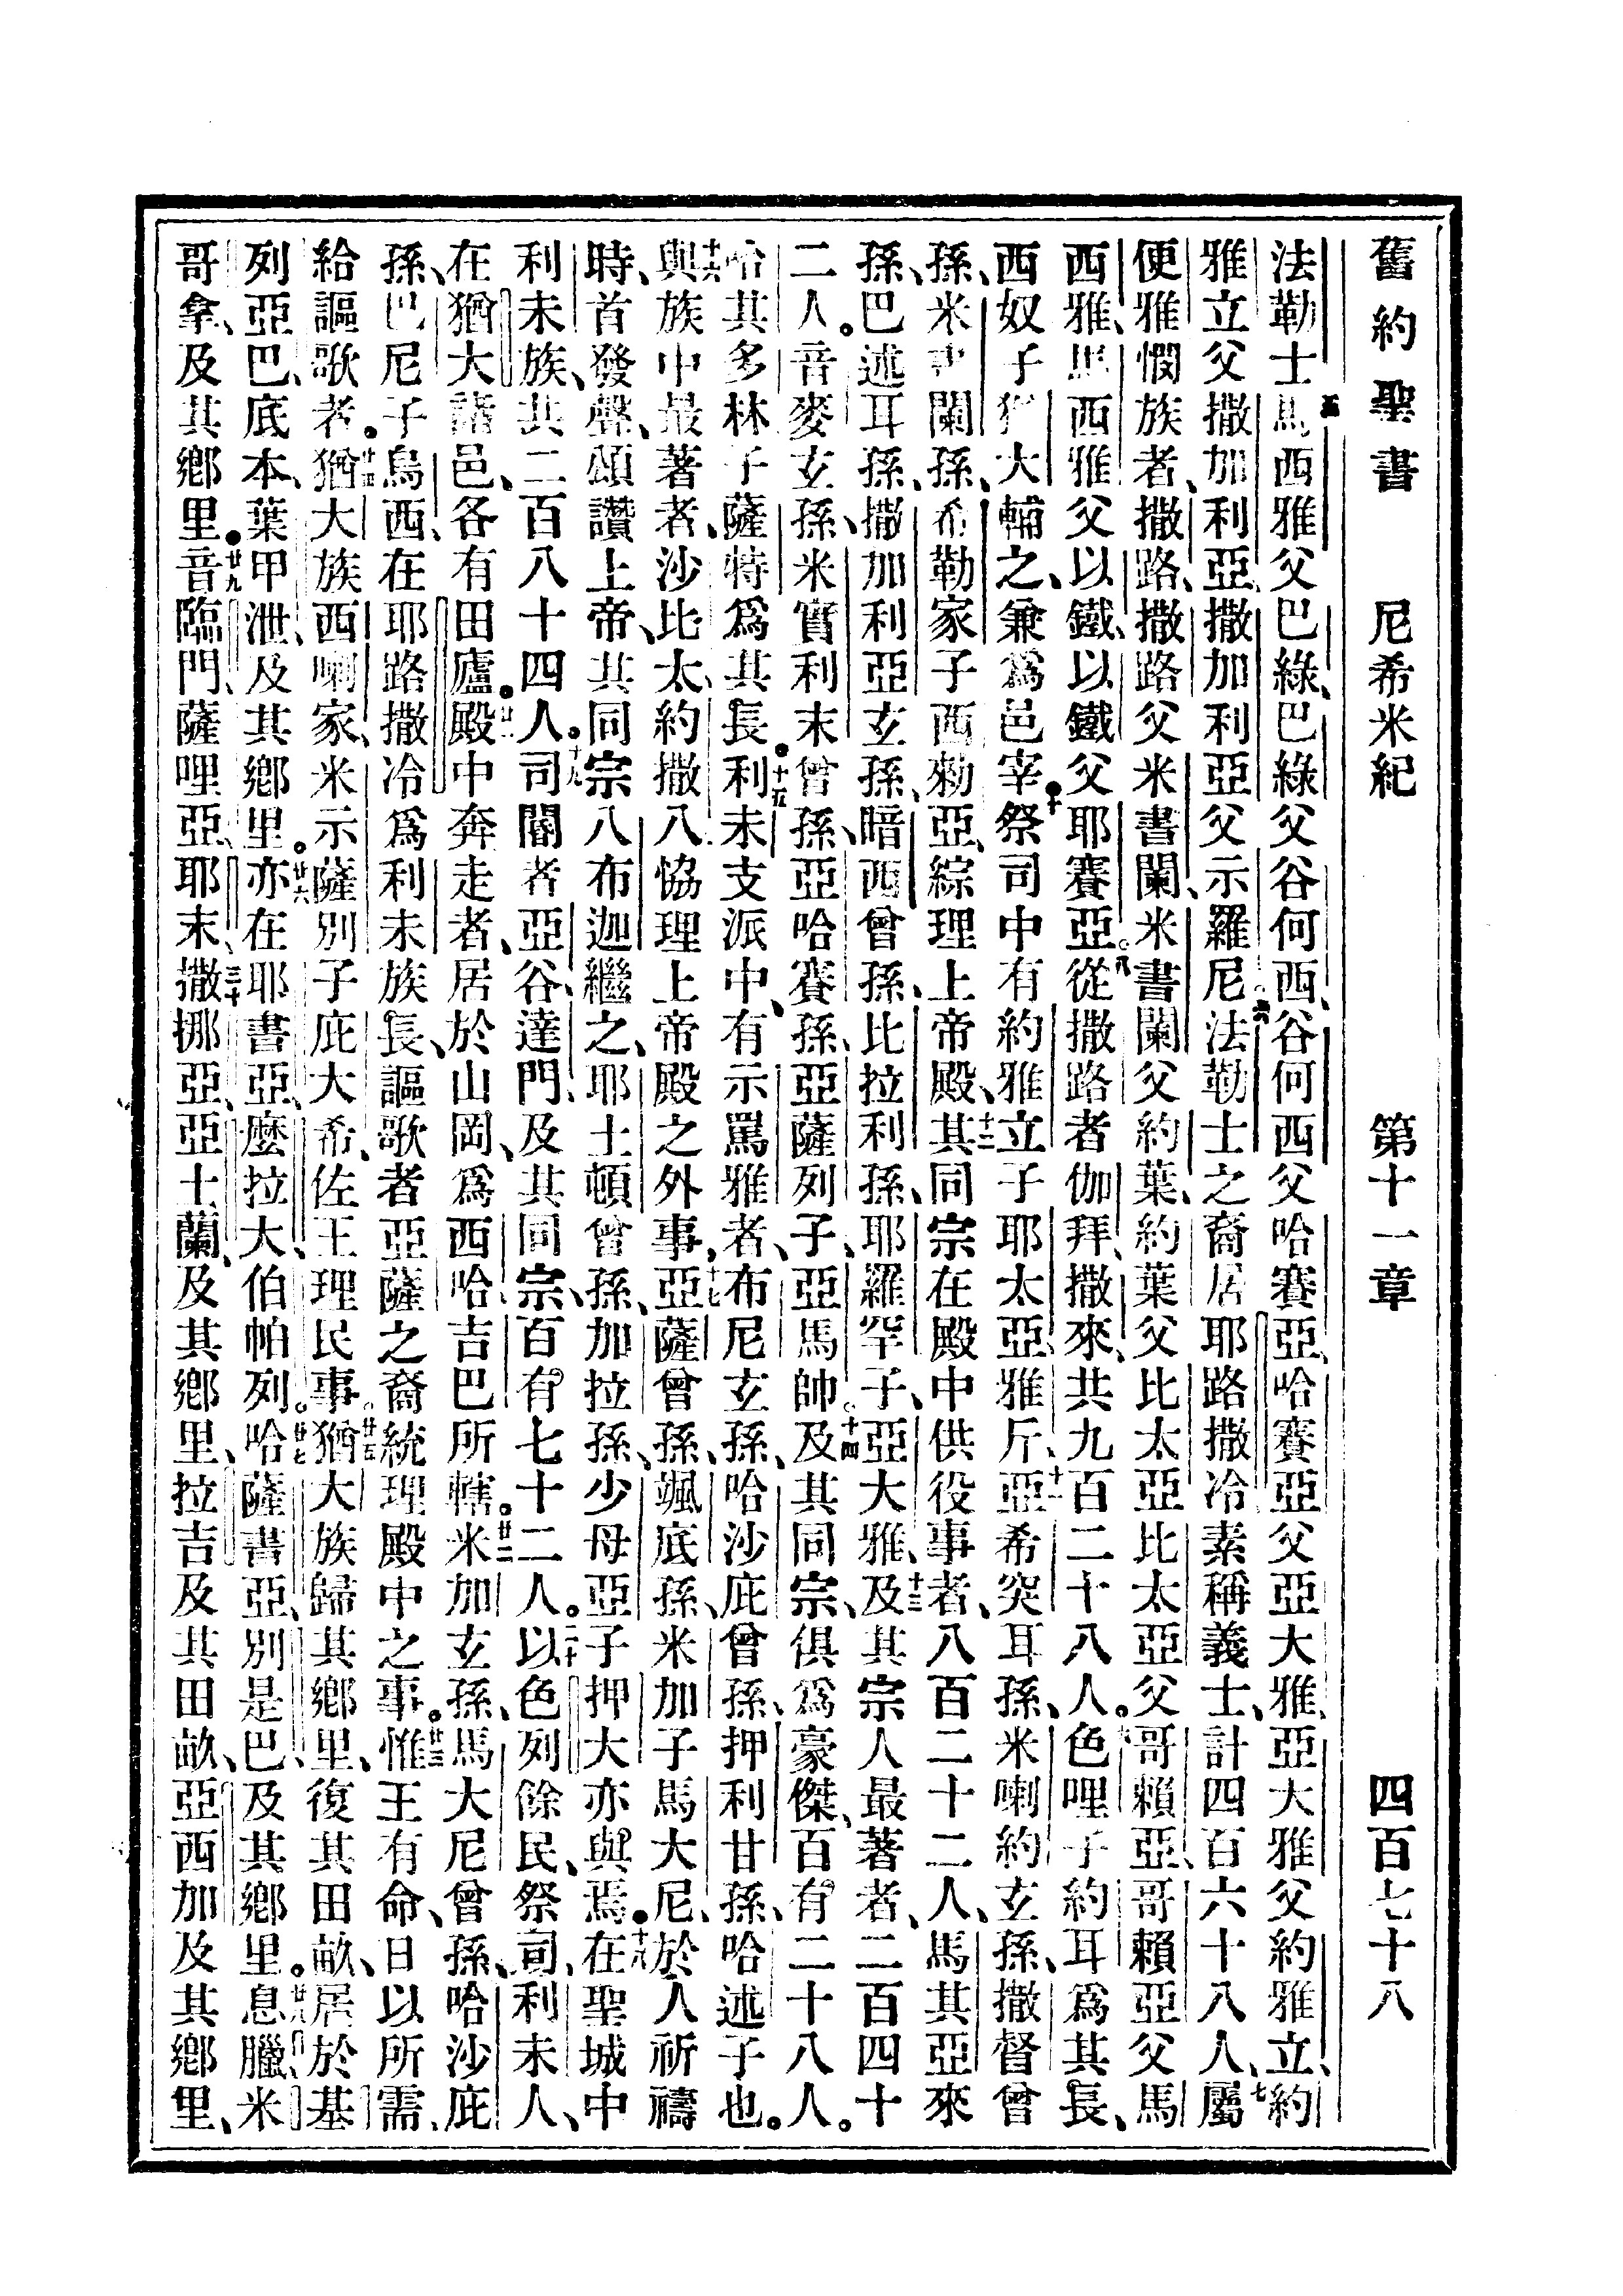 舊約聖書 尼希米紀 第十一章 四百七十八
法勒士五馬西雅父巴綠、巴綠父谷何西、谷何西父哈賽亞、哈賽亞父亞大雅、亞大雅父約雅立、約
雅立父撒加利亞、撒加利亞父示羅尼。六法勒士之裔居耶路撒冷素稱義士、計四百六十八人、七屬
便雅憫族者、撒路、撒路父米書闌、米書闌父約葉、約葉父比太亞比太亞父哥賴亞、哥賴亞父馬
西雅、馬西雅父以鐵、以鐵父耶賽亞。八從撒路者伽拜、撒來、共九百二十八人。九色哩子約耳爲其長、
西奴子猶大輔之、兼爲邑宰。十祭司中有約雅立子耶太亞雅斤、十一亞希突耳孫、米喇約玄孫、撒督曾
孫、米書闌孫、希勒家子西勑亞、綜理上帝殿、十二其同宗在殿中供役事者、八百二十二人、馬其亞來
孫、巴述耳孫、撒加利亞玄孫、暗西曾孫、比拉利孫、耶羅罕子、亞大雅、十三及其宗人最著者、二百四十
二人。音麥玄孫、米實利末曾孫、亞哈賽孫、亞薩列子、亞馬帥。十四及其同宗、俱爲豪傑、百有二十八人。
哈其多林子薩特爲其長。十五利未支派中、有示罵雅者、布尼玄孫、哈沙庇曾孫、押利甘孫、哈述子也。
十六與族中最著者、沙比太、約撒八協理上帝殿之外事、十七亞薩曾孫、颯底孫、米加子馬大尼、於人祈禱
時、首發聲、頌讚上帝、其同宗八布迦繼之、耶土頓曾孫、加拉孫、少母亞子押大亦與焉。十八在聖城中
利未族、共二百八十四人。十九司閽者亞谷、達門、及其同宗、百有七十二人。二十以色列餘民、祭司、利未人、
在猶大諸邑、各有田廬。廿一殿中奔走者、居於山岡、爲西哈吉巴所轄。廿二米加玄孫、馬大尼曾孫、哈沙庇
孫、巴尼子烏西、在耶路撒冷爲利未族長、謳歌者亞薩之裔統理殿中之事。廿三惟王有命、日以所需
給謳歌者。廿四猶大族西喇家、米示薩別子庇大希、佐王理民事。廿五猶大族歸其鄉里、復其田畝、居於基
列亞巴、底本、葉甲泄、及其鄉里。廿六亦在耶書亞、麼拉大、伯帕列。廿七哈薩書亞、別是巴、及其鄉里。廿八息臘米
哥拿、及其鄉里。廿九音臨門、薩哩亞、耶末、三十撒挪亞、亞土蘭、及其鄉里、拉吉及其田畝、亞西加及其鄉里、